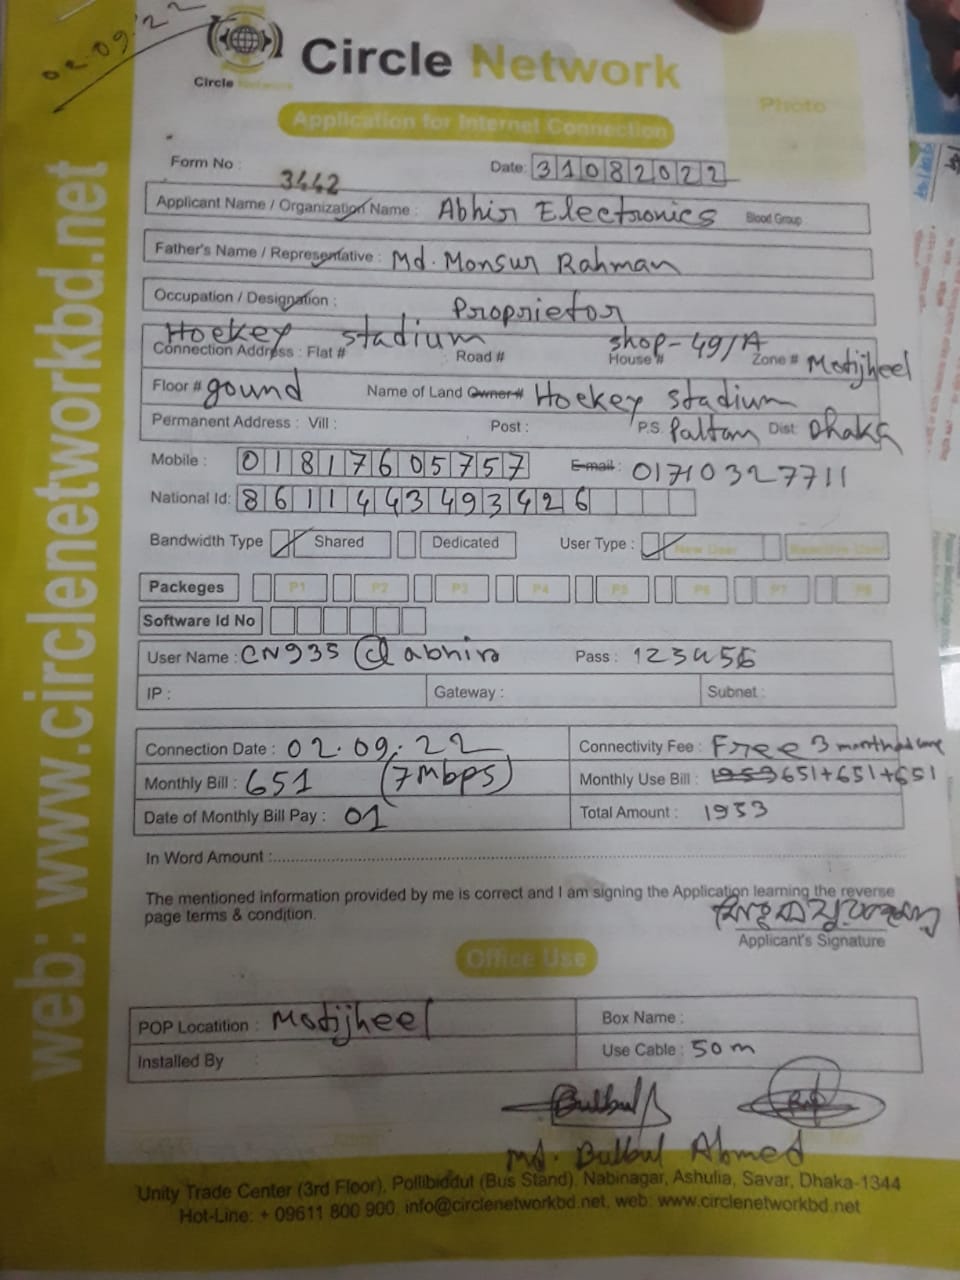 02.09.22
Circle Network
Circle Network
Application for Internet Connection
Photo
web: www.circlenetworkbd.net
Form No : 3442 Date: 31082022
Applicant Name / Organization Name : Abhir Electronics Blood Group :
Father's Name / Representative : Md. Monsur Rahman
Occupation / Designation : Proprietor
Hockey stadium shop-49/A
Connection Address : Flat # Road # House # Zone # Motijheel
Floor # gound Name of Land Owner# Hockey stadium
Permanent Address : Vill : Post : P.S. Paltan Dist Dhaka
Mobile : 01817605757 E-mail : 01710327711
National Id: 8611443493426
Bandwidth Type Shared Dedicated User Type : New User Reactive User
Packeges P1 P2 P3 P4 P5 P6 P7 P8
Software Id No
User Name : CN935 @ abhir Pass : 123456
IP : Gateway : Subnet :
Connection Date : 02.09.22 Connectivity Fee : Free 3 month
Monthly Bill : 651 (7Mbps) Monthly Use Bill : 1953 651+651+651
Date of Monthly Bill Pay : 01 Total Amount : 1953
In Word Amount :
The mentioned information provided by me is correct and I am signing the Application learning the reverse
page terms & condition.
Applicant's Signature
Office Use
POP Locatition : Motijheel Box Name :
Installed By : Use Cable : 50 m
Bulbul
Md. Bulbul Ahmed
Unity Trade Center (3rd Floor), Pollibiddut (Bus Stand), Nabinagar, Ashulia, Savar, Dhaka-1344
Hot-Line: + 09611 800 900, info@circlenetworkbd.net, web: www.circlenetworkbd.net